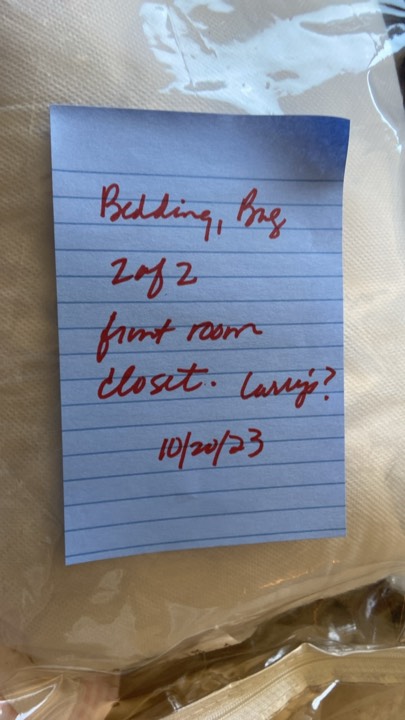 Bedding, Bag
2 of 2
front room
closet. Larry's?
10/20/23